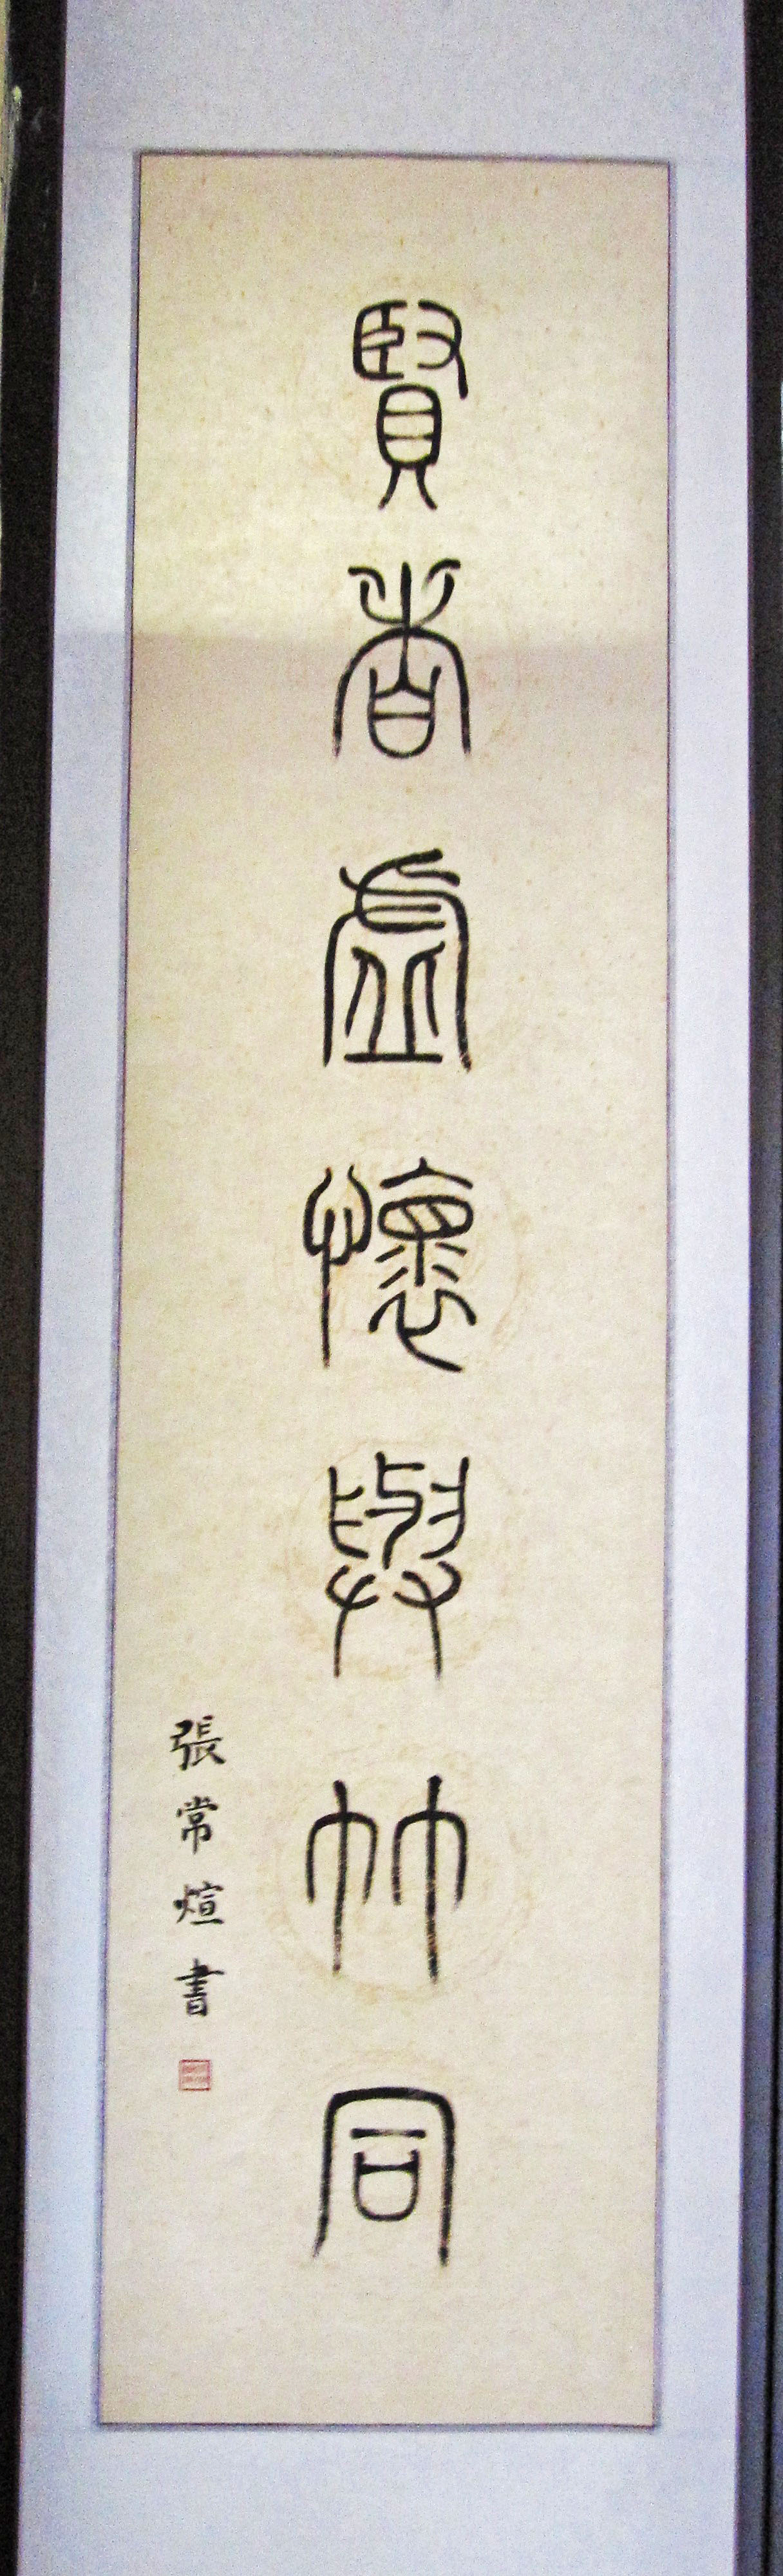 賢者虛懷與竹同
張常煊書